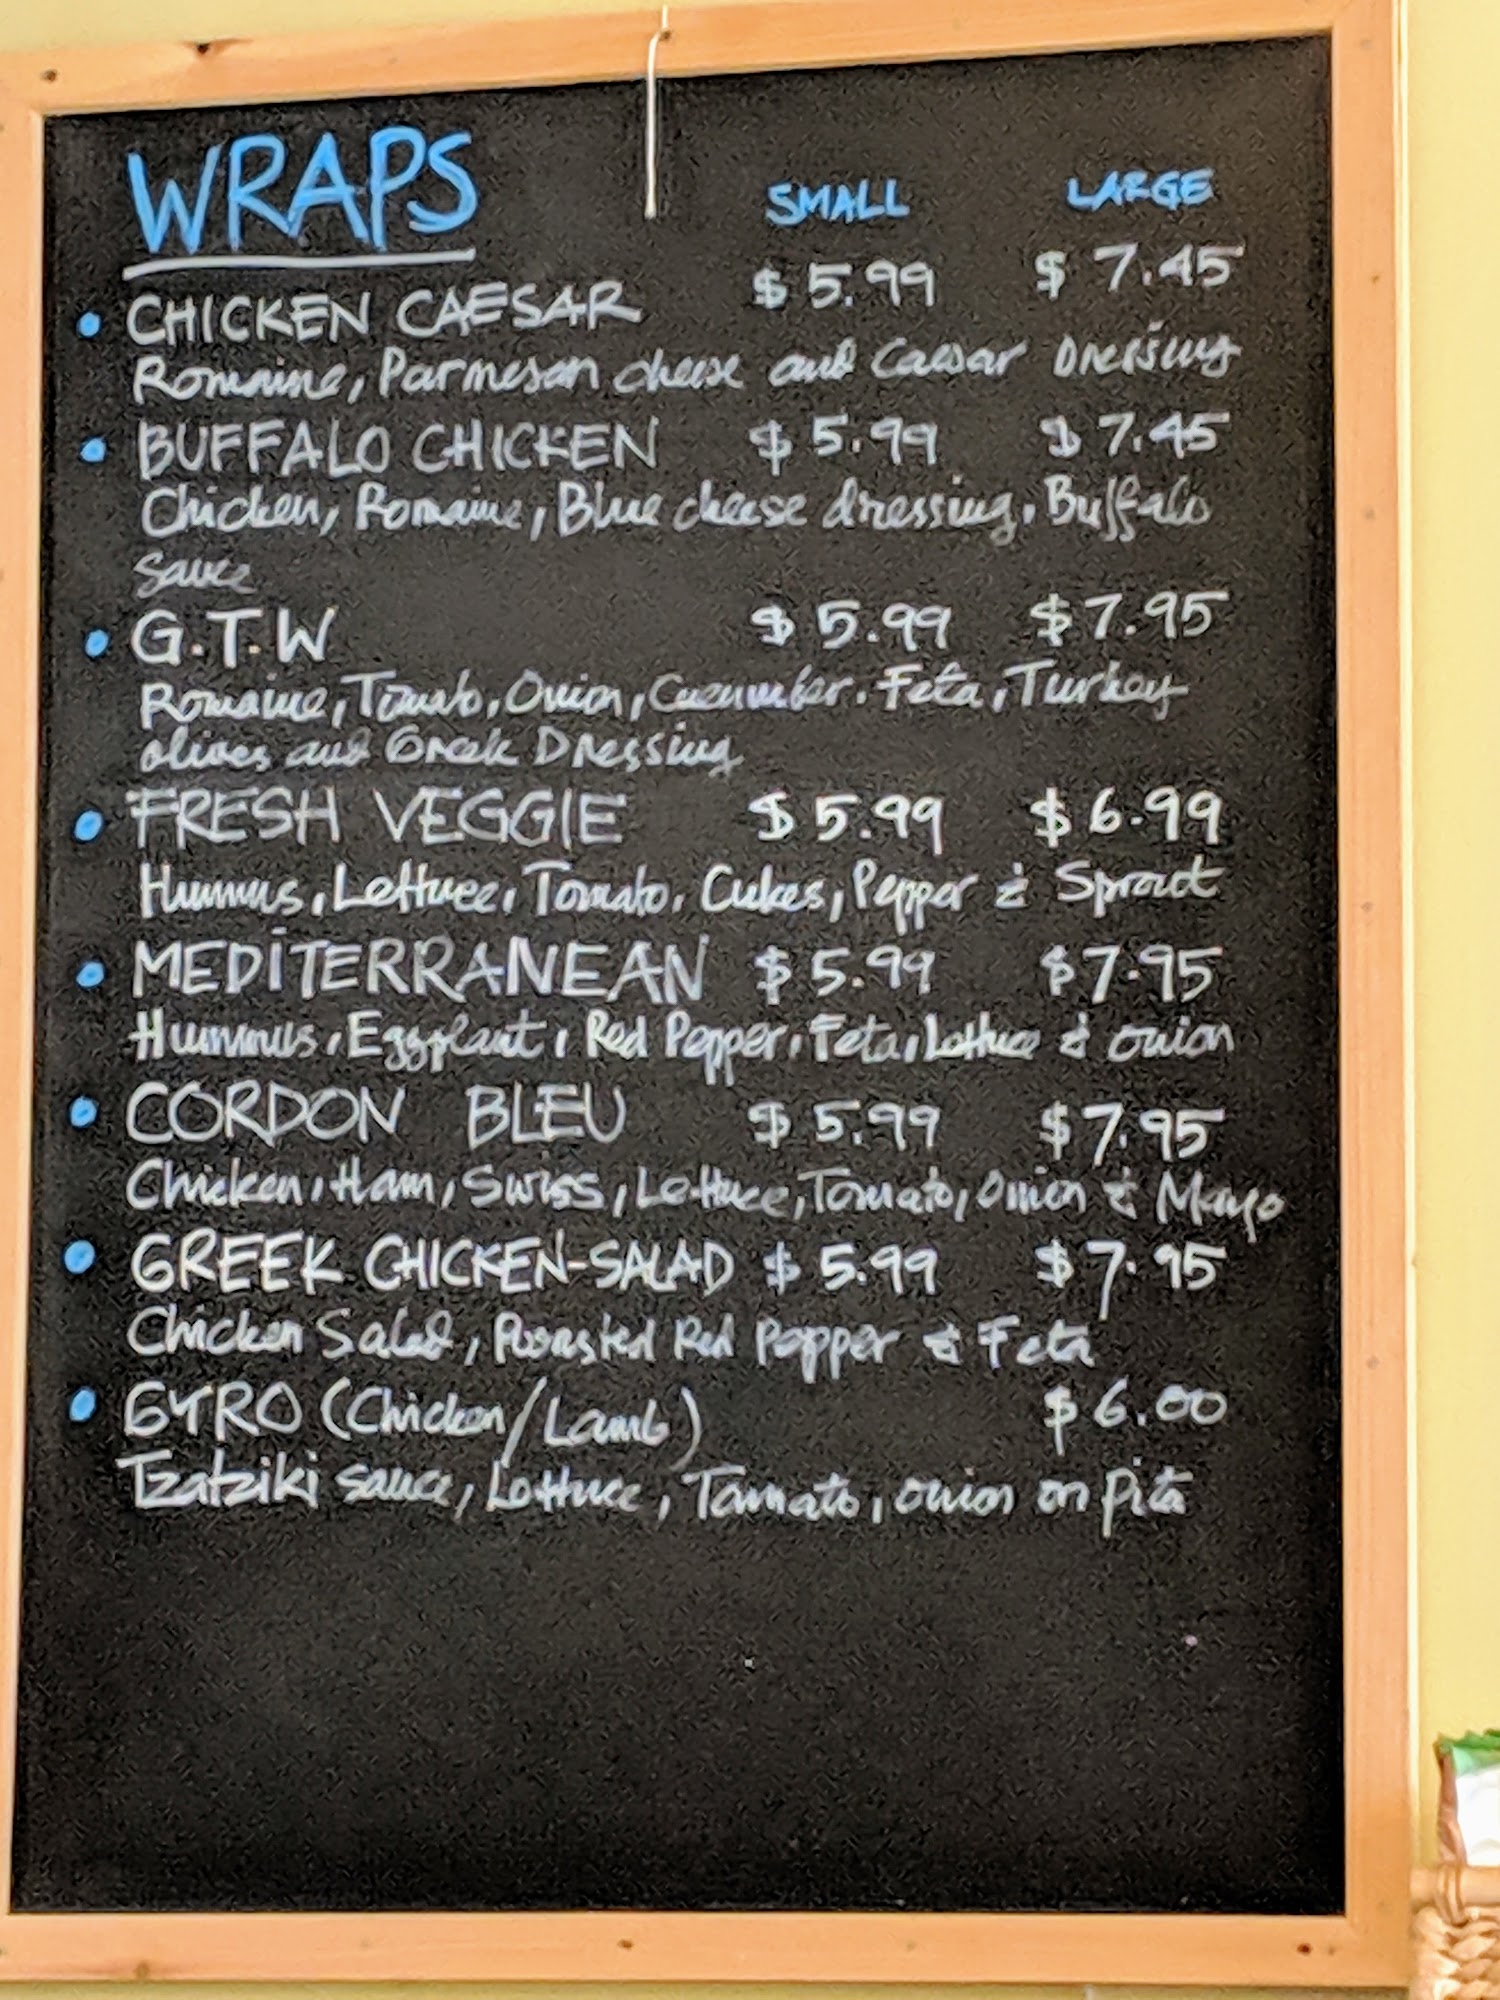 WRAPS SMALL LARGE
• CHICKEN CAESAR $5.99 $7.45
Romaine, Parmesan cheese and Caesar Dressing
• BUFFALO CHICKEN $5.99 $7.45
Chicken, Romaine, Blue cheese dressing, Buffalo
Sauce
• G.T.W $5.99 $7.95
Romaine, Tomato, Onion, Cucumber, Feta, Turkey
olives and Greek Dressing
• FRESH VEGGIE $5.99 $6.99
Hummus, Lettuce, Tomato, Cukes, Pepper & Sprout
• MEDITERRANEAN $5.99 $7.95
Hummus, Eggplant, Red Pepper, Feta, Lettuce & onion
• CORDON BLEU $5.99 $7.95
Chicken, Ham, Swiss, Lettuce, Tomato, Onion & Mayo
• GREEK CHICKEN-SALAD $5.99 $7.95
Chicken Salad, Roasted Red Pepper & Feta
• GYRO (Chicken/Lamb) $6.00
Tzatziki sauce, Lettuce, Tomato, onion on pita